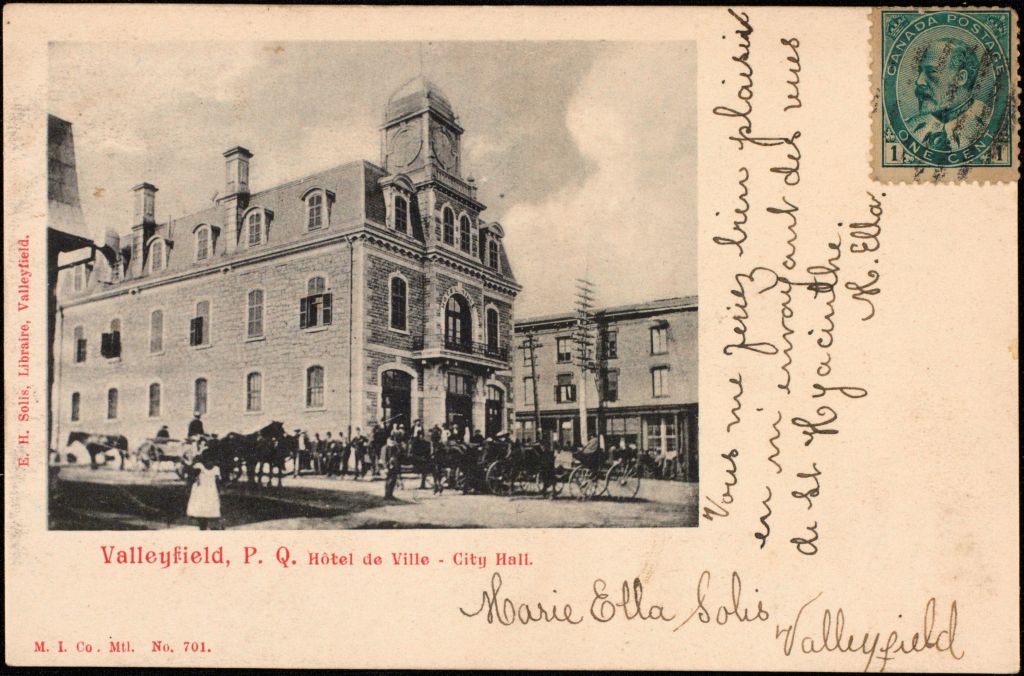 CANADA POSTAGE
1 ONE CENT 1
Vous me feriez bien plaisir
en m'envoyant des vues
de St Hyacinthe.
M. Ella.
E. H. Solis, Libraire, Valleyfield.
Valleyfield, P. Q. Hôtel de Ville - City Hall.
Marie Ella Solis
Valleyfield
M. I. Co. Mtl. No. 701.